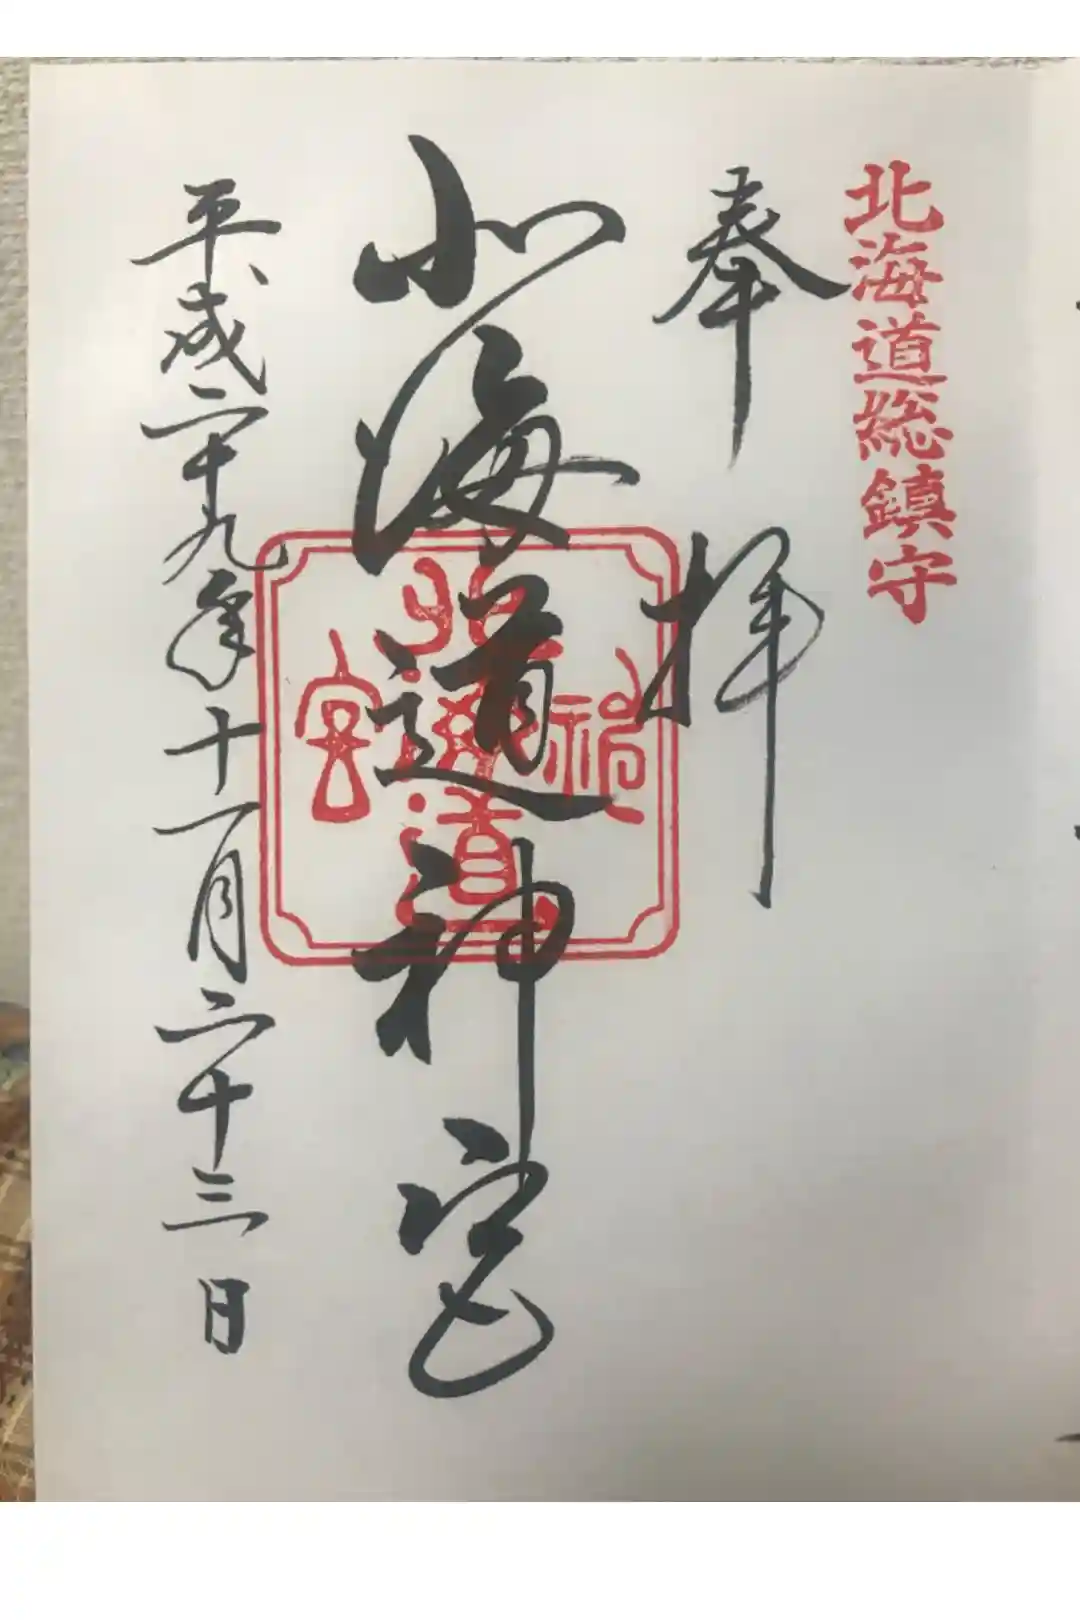 北海道総鎮守
奉拝
北海道神宮
北海道神宮
平成二十九年十一月二十三日